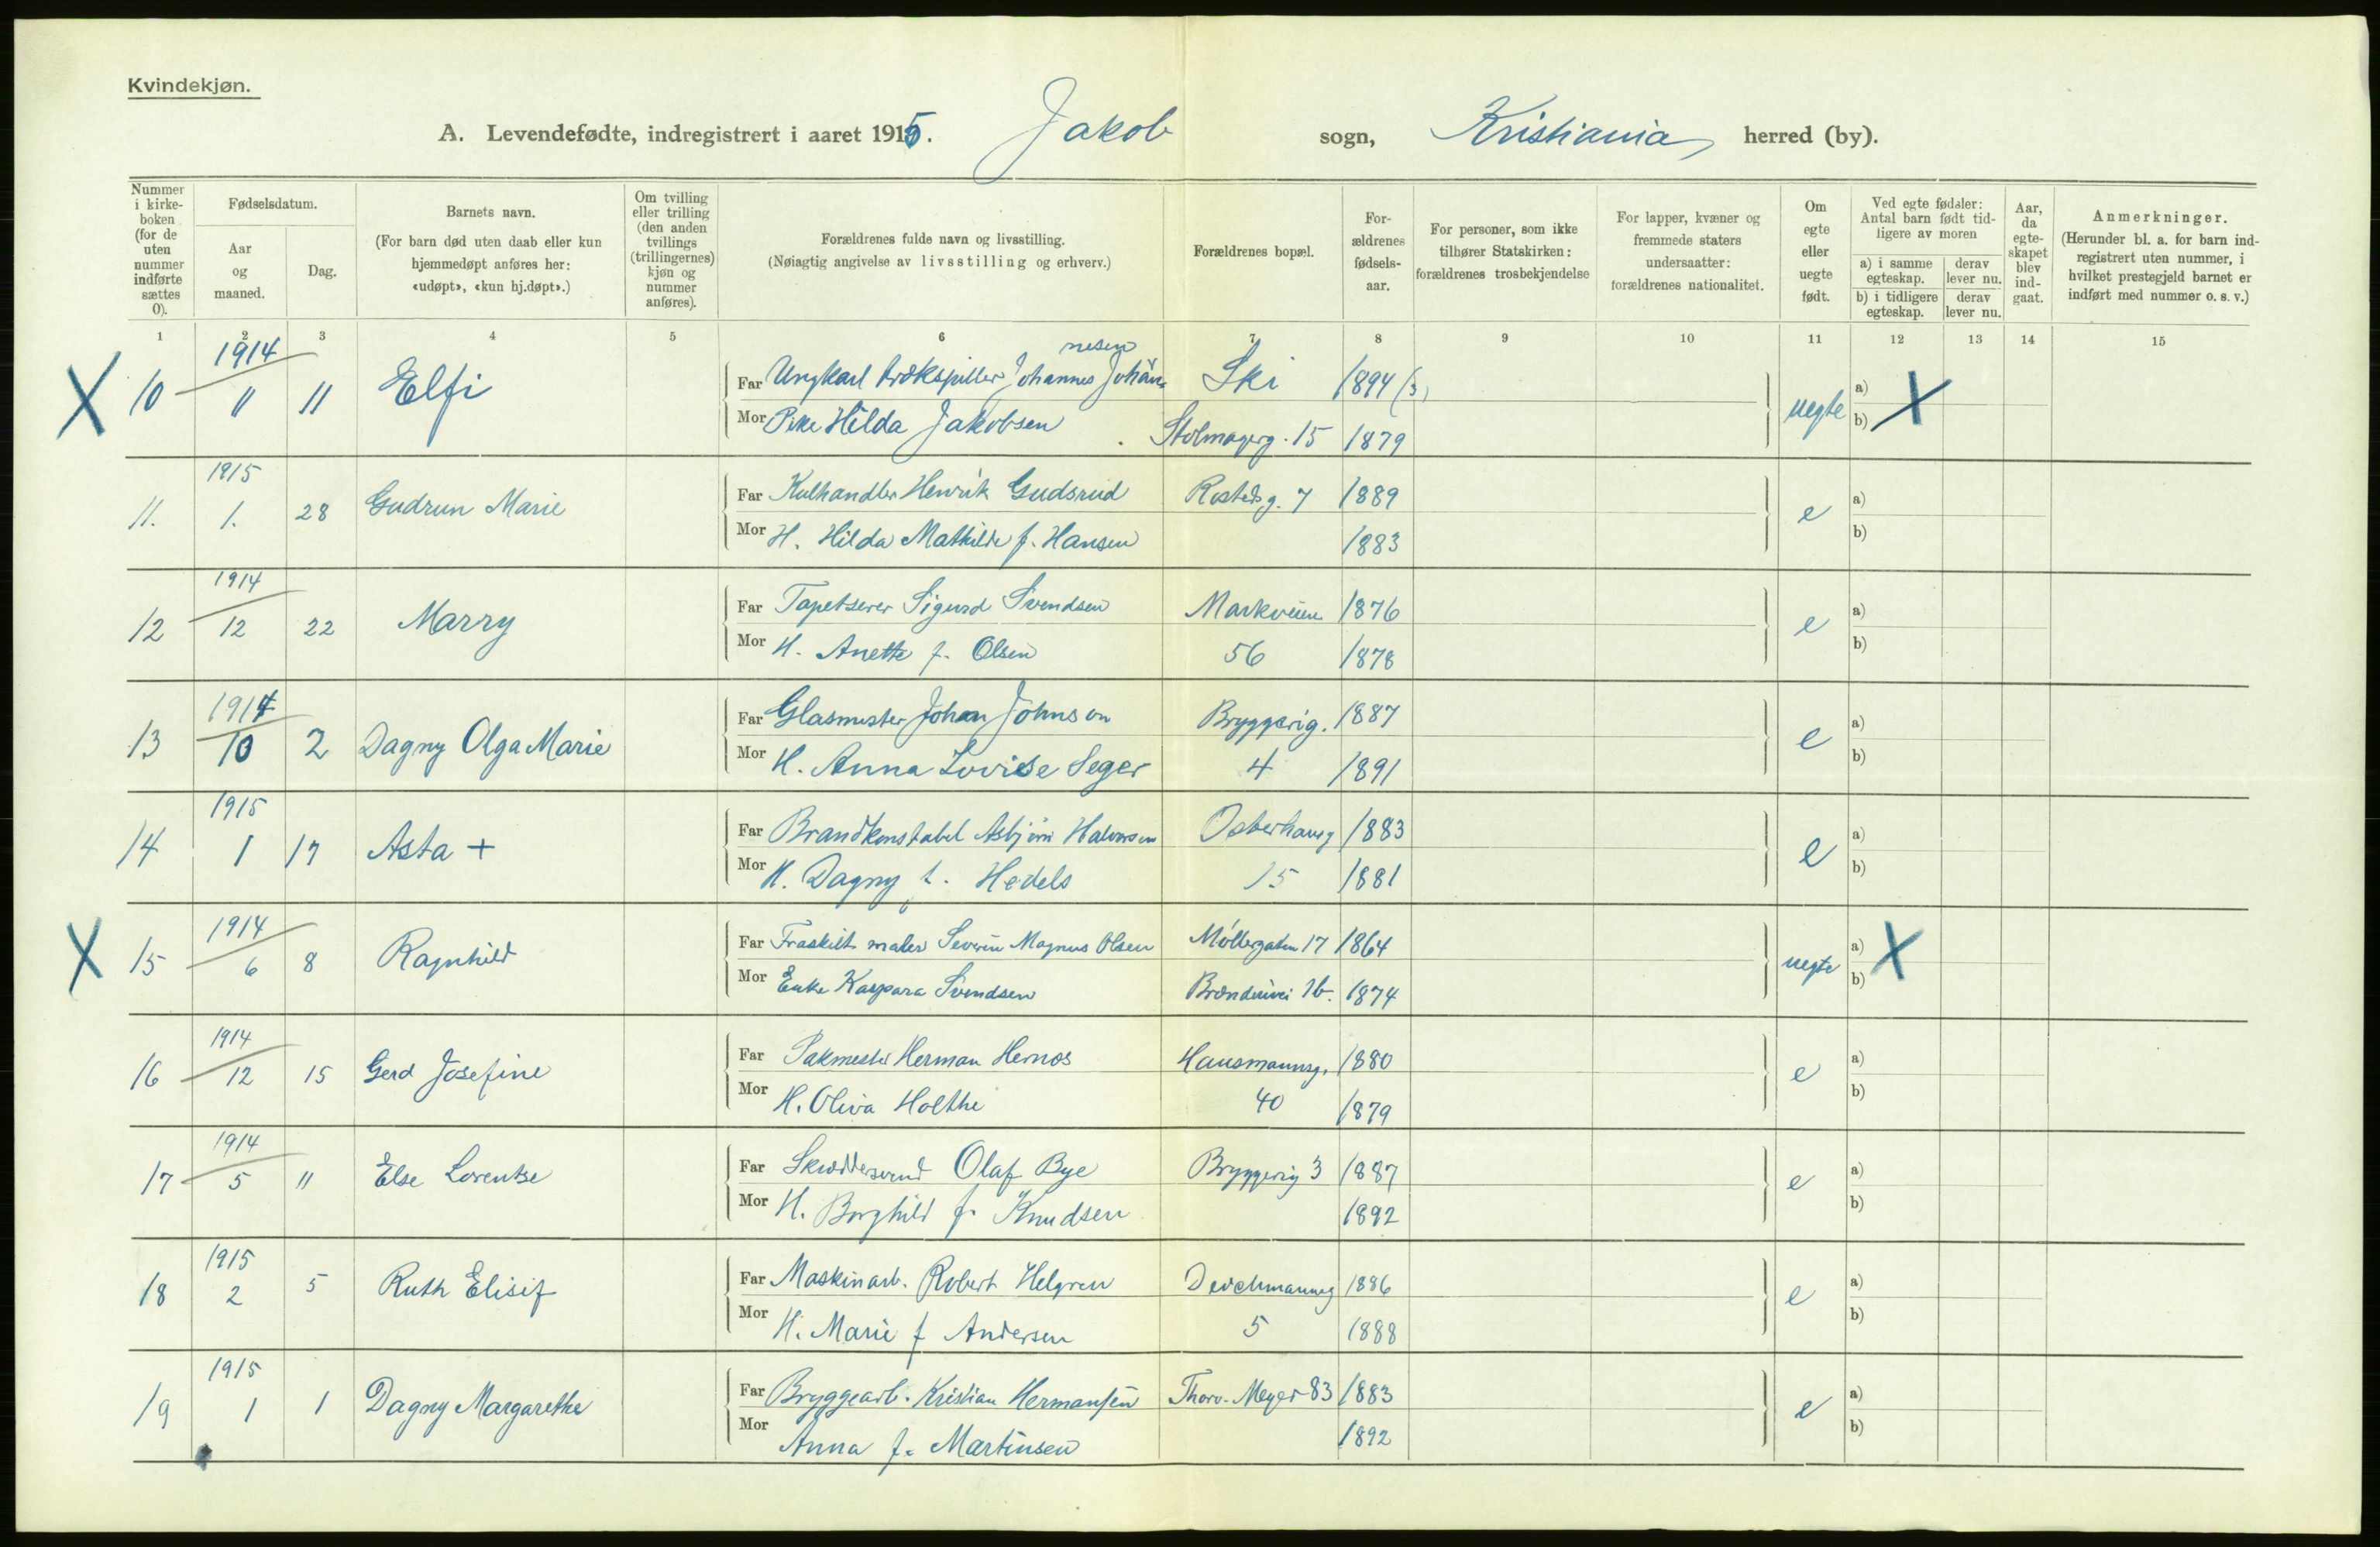 Kvindekjøn.
A. Levendefødte, indregistrert i aaret 1915. Jakob sogn, Kristiania herred (by).
Nummer i kirke-boken (for de uten nummer indførte sættes 0).
Fødselsdatum.
Aar og maaned.
Dag.
Barnets navn.
(For barn død uten daab eller kun hjemmedøpt anføres her: «udøpt», «kun hj.døpt».)
Om tvilling eller trilling (den anden tvillings (trillingernes) kjøn og nummer anføres).
Forældrenes fulde navn og livsstilling.
(Nøiagtig angivelse av livsstilling og erhverv.)
Forældrenes bopæl.
For-ældrenes fødsels-aar.
For personer, som ikke tilhører Statskirken: forældrenes trosbekjendelse
For lapper, kvæner og fremmede staters undersaatter: forældrenes nationalitet.
Om egte eller uegte født.
Ved egte fødsler: Antal barn født tid-ligere av moren
a) i samme egteskap.
derav lever nu.
b) i tidligere egteskap.
derav lever nu.
Aar, da egte-skapet blev ind-gaat.
Anmerkninger.
(Herunder bl. a. for barn ind-registrert uten nummer, i hvilket prestegjeld barnet er indført med nummer o. s. v.)
1 2 3 4 5 6 7 8 9 10 11 12 13 14 15
X 10 1914 11 11 Elfi
Far Ungkarl trækspiller Johannes Johan-nesen Ski 1894 (3)
Mor Pike Hilda Jakobsen Stolmagerg. 15 1879
uegte a) b) X
11. 1915 1. 28 Gudrun Marie
Far Kulhandler Henrik Gudsrud Rostedsg. 7 1889
Mor H. Hilda Mathilde f. Hansen 1883
e a) b)
12 1914 12 22 Marry
Far Tapetserer Sigurd Svendsen Markveien 1876
Mor H. Anette f. Olsen 56 1878
e a) b)
13 1914 10 2 Dagny Olga Marie
Far Glasmester Johan Johnson Bryggerig. 1887
Mor H. Anna Lovise Seger 4 1891
e a) b)
14 1915 1 17 Asta +
Far Brandkonstabel Asbjørn Halvorsen Osterhausg 1883
Mor H. Dagny f. Hedels 15 1881
e a) b)
X 15 1914 6 8 Ragnhild
Far Fraskilt maler Severin Magnus Olsen Møllergaten 17 1864
Mor Enke Kaspara Svendsen 1b. 1874
uegte a) b) X
16 1914 12 15 Gerd Josefine
Far Pakmester Herman Hernos Hausmannsg. 1880
Mor H. Oliva Holthe 40 1879
e a) b)
17 1914 5 11 Else Lorentse
Far Skræddersvend Olaf Bye Bryggerig 3 1887
Mor H. Borghild f. Knudsen 1892
e a) b)
18 1915 2 5 Ruth Elisif
Far Maskinarb. Robert Helgren Deichmannsg 1886
Mor H. Marie f Andersen 5 1888
e a) b)
19 1915 1 1 Dagny Margarethe
Far Bryggearb. Kristian Hermansen Thorv. Meyer 83 1883
Mor Anna f. Martinsen 1892
e a) b)